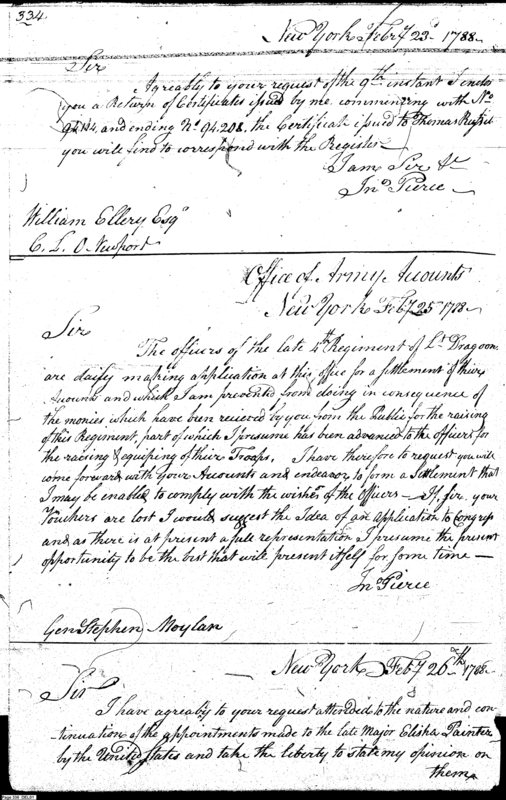 334.
New York Feby 23d 1788
Sir
Agreably to your request of the 9th instant I enclose
you a Return of Certificates issued by me commencing with No
and ending No 94.208. the Certificate issued to Thomas Russel
you will find to correspond with the Register
I am Sir &c
Jno Pierce
William Ellery Esqr
C. L. O Newport
Office of Army Accounts
New York Feby 25 1788
Sir
The officers of the late 4th Regiment of Lt Dragoons
are daily making application at this office for a settlement of their
Accounts and which I am prevented from doing in consequence of
the monies which have been recieved by you from the Public for the raising
of this Regiment, part of which I presume has been advanced to the officers for
the raising & equiping of their Troops. I have therefore to request you will
come forward with your Accounts and endeavor to form a Settlement that
I may be enabled to comply with the wishes of the Officers — If, sir, your
Vouchers are lost I would suggest the Idea of an application to Congress
and as there is at present a full representation I presume the present
opportunity to be the best that will present itself for some time —
Jno Pierce
Genl Stephen Moylan
New York Feby 26th 1788
Sir
I have agreably to your request attended to the nature and con-
tinuation of the appointments made to the late Major Elisha Painter
by the United States and take the liberty to state my opinion on
them